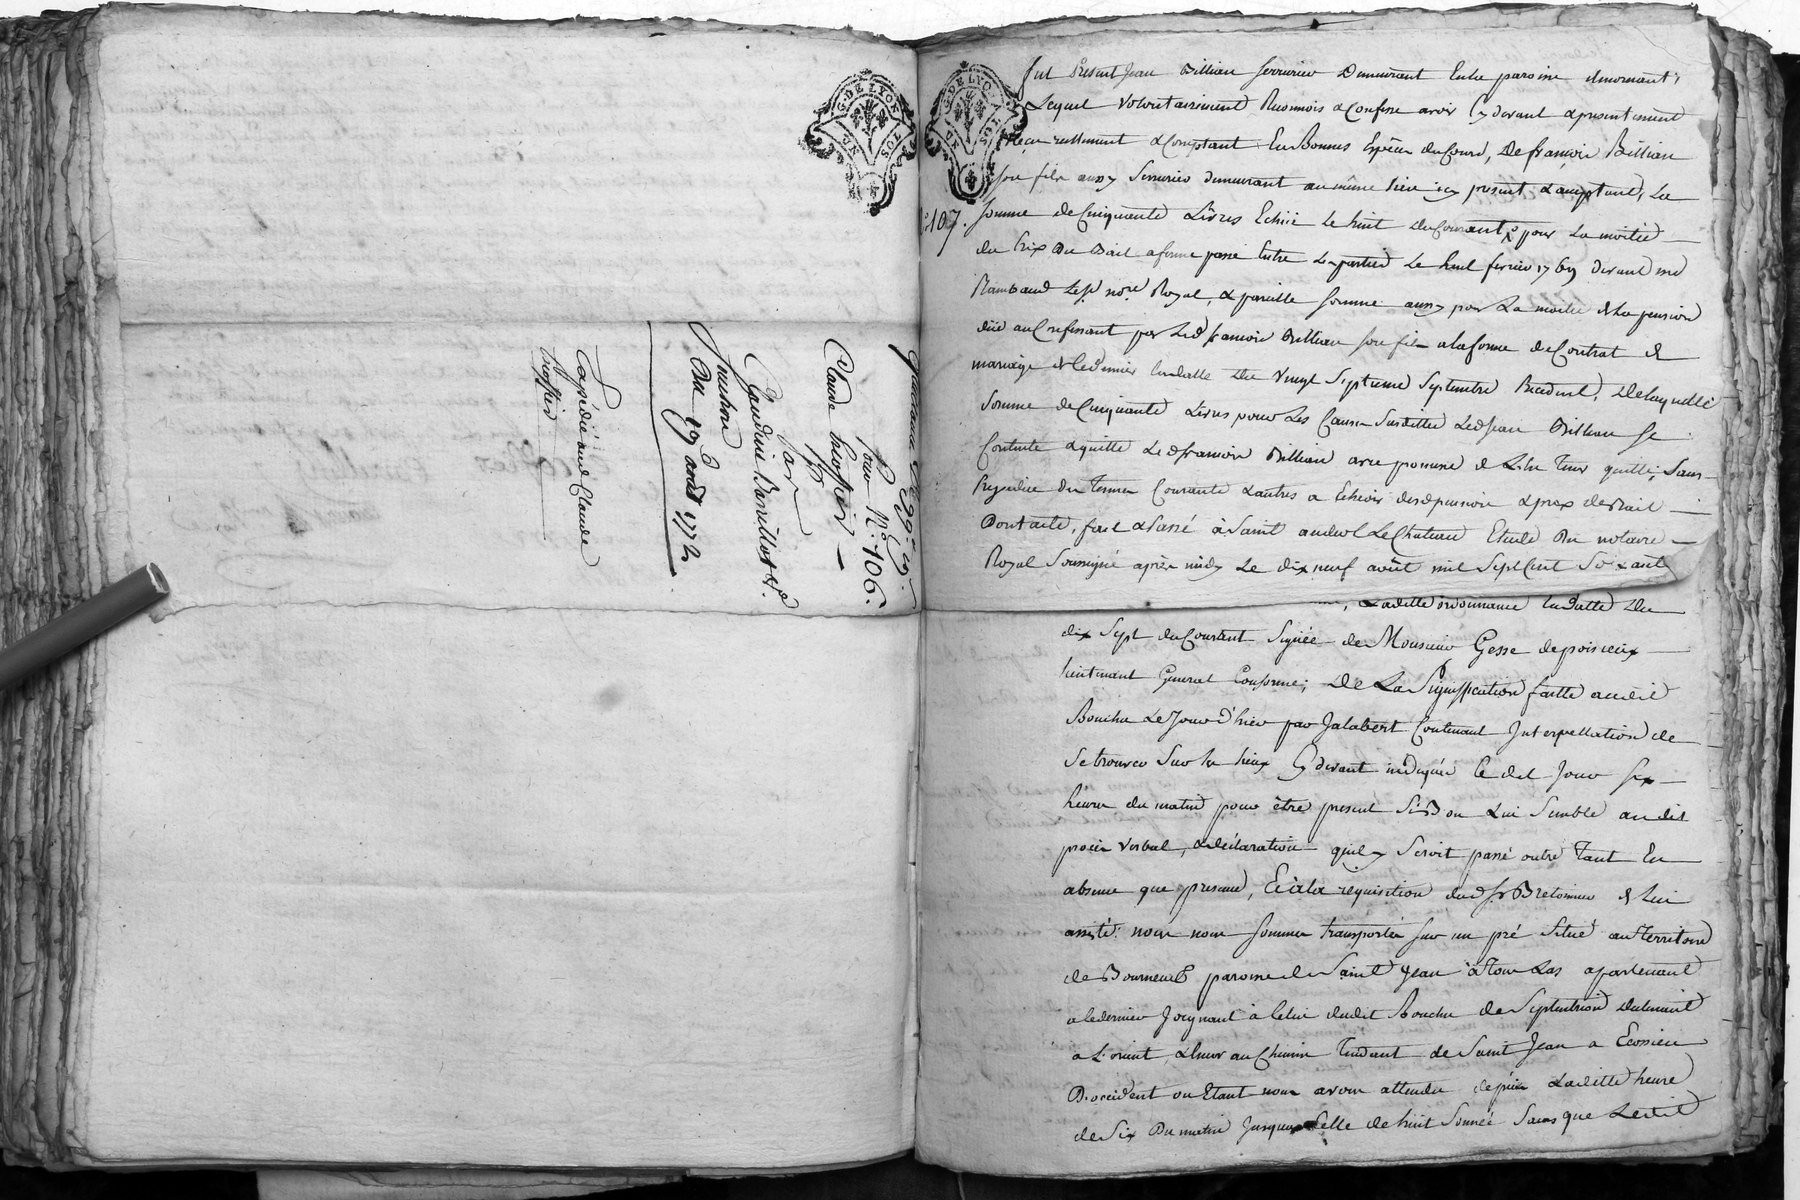 G. DE LYON
Quittance de 39# 19s
pour N° 106.
Claude trioffier
par
Claudine Barrillot &
Juenhon
Du 19 août 1772
Expédié aud Claude
trioffier
G. DE LYON
N° 107.
fut Present Jean Billian serrurier Demeurant Entre paroisse
Lequel volontairement Reconnois & Confesse avoir Cy devant & presentement
Reçu reellement & Comptant En Bonnes Espèces du Cours, De françois Billian
son fils aussy serrurier demeurant au même lieu icy présent & acceptant, La
somme de Cinquante Livres Echüe le huit du Courant pour La moitié
du Prix Du Bail a ferme passé Entre Les parties Le huit fevrier 1769 devant me
Rambaud Les no.re Royal, & pareille somme aussy pour La moitié de La pension
düe au Confessant par Led françois Billian son fils a la forme de Contrat de
mariage de Ce dernier En datte Du vingt Septieme Septembre De Laquelle
Somme de Cinquante Livres pour Les Causes Susdittes Led Jean Billian se
Contente & quitte Led françois Billian avec promesse de L'En tenir quitte, Sans
Prejudice du terme Courant & autres a Echeoir desd pension & prix de Bail
Dont acte, fait & Passé à Saint andeol Le Chateau Etude Du notaire
Royal Soussigné après midy Le dix neuf août mil Sept Cent Soixante
, Laditte ordonnance En Datte Du
dix Sept du Courant Signée de Monsieur Gesse de poisieux
lieutenant General Conforme; De La Signiffication faitte audit
Bouchu Le Jour d'hier par Jalabert Contenant Interpellation de
Se trouver Sur les lieux Cy devant indiqués Ce dit Jour six
heures du matin pour être present Si Bon Lui Semble audit
procès verbal, & déclaration quil y Seroit passé outre Tant En
absence que presence, Et à la requisition dud Sr Bretonnier & de lui
assisté nous nous sommes transportés sur un pré Situé au Territoire
de Bourneuf paroisse de Saint Jean à Tou Las apartenant
a Ce dernier Joignant à Celui dudit Bouchu de Septentrion
a L'orient & encor au Chemin Tendant de Saint Jean a Ecossieu
D'occident ou Etant nous avons attendu depuis Laditte heure
de Six Du matin Jusques a Celle de huit Sonnée Sans que Ledit